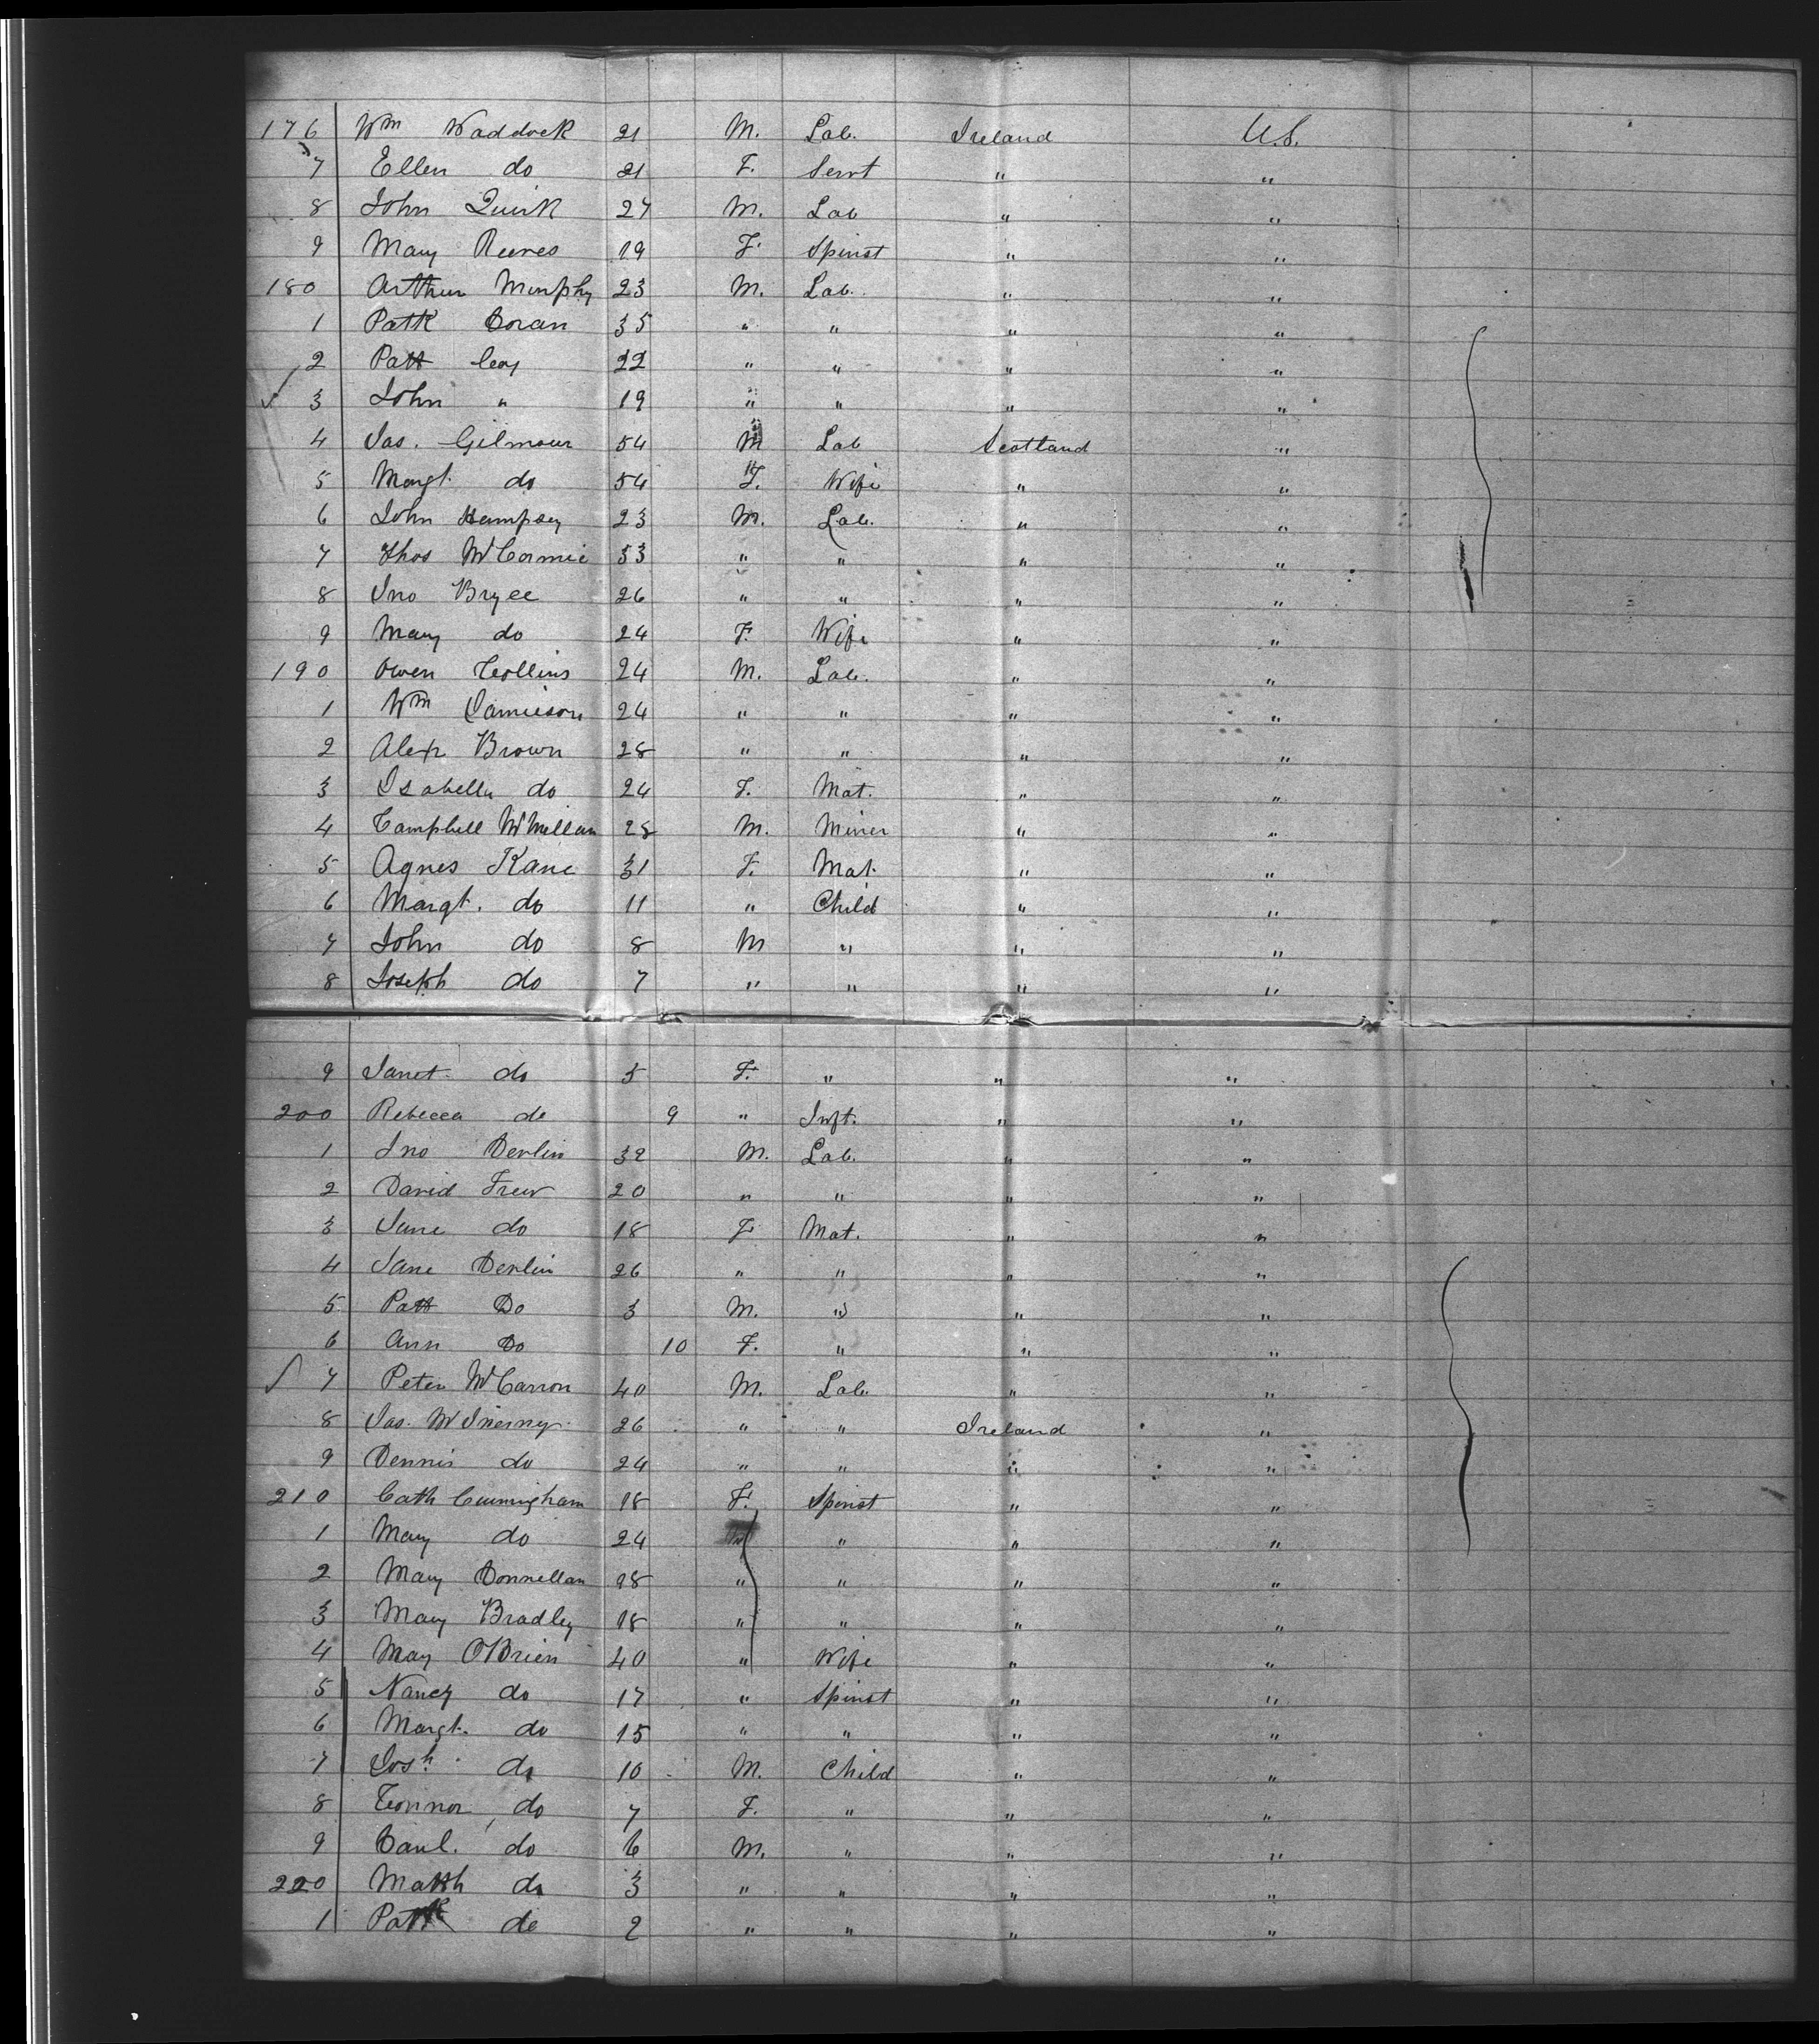 176 Wm Waddock 21 M. Lab. Ireland U.S.
7 Ellen do 21 F. Servt " "
8 John Quirk 27 M. Lab " "
9 Mary Reeves 19 F. Spinst " "
180 Arthur Murphy 23 M. Lab. " "
1 Patk Doran 35 " " " "
2 Patt 22 " " " "
3 John " 19 " " " "
4 Jas. Gilmour 54 M Lab Scotland "
5 Margt. do 54 F. Wife " "
6 John Hampsey 23 M. Lab. " "
7 Thos McCormic 53 " " " "
8 Jno Bryce 26 " " " "
9 Mary do 24 F. Wife " "
190 Owen Collins 24 M. Lab. " "
1 Wm Jamieson 24 " " " "
2 Alexr Brown 28 " " " "
3 Isabella do 24 F. Mat. " "
4 Campbell McMillan 28 M. Miner " "
5 Agnes Kane 31 F. Mat. " "
6 Margt. do 11 " Child " "
7 John do 8 M " " "
8 Joseph do 7 " " " "
9 Janet do 5 F. " " "
200 Rebecca do 9 " Inft. " "
1 Jno Devlin 32 M. Lab. " "
2 David Frew 20 " " " "
3 Jane do 18 F Mat. " "
4 Jane Devlin 26 " " " "
5 Patt Do 3 M. " " "
6 Ann Do 10 F. " " "
7 Peter McCarron 40 M. Lab. " "
8 Jas. McInerny 26 " " Ireland "
9 Dennis do 24 " " " "
210 Cath Cunningham 18 F. Spinst " "
1 Mary do 24 " " "
2 Mary Donnellan 18 " " " "
3 Mary Bradley 18 " " " "
4 Mary OBrien 40 " Wife " "
5 Nancy do 17 " Spinst " "
6 Margt. do 15 " " " "
7 Josh. do 10 M. Child " "
8 Connor do 7 F. " " "
9 do 6 M. " " "
220 Matth do 3 " " " "
1 Patk do 2 " " " "